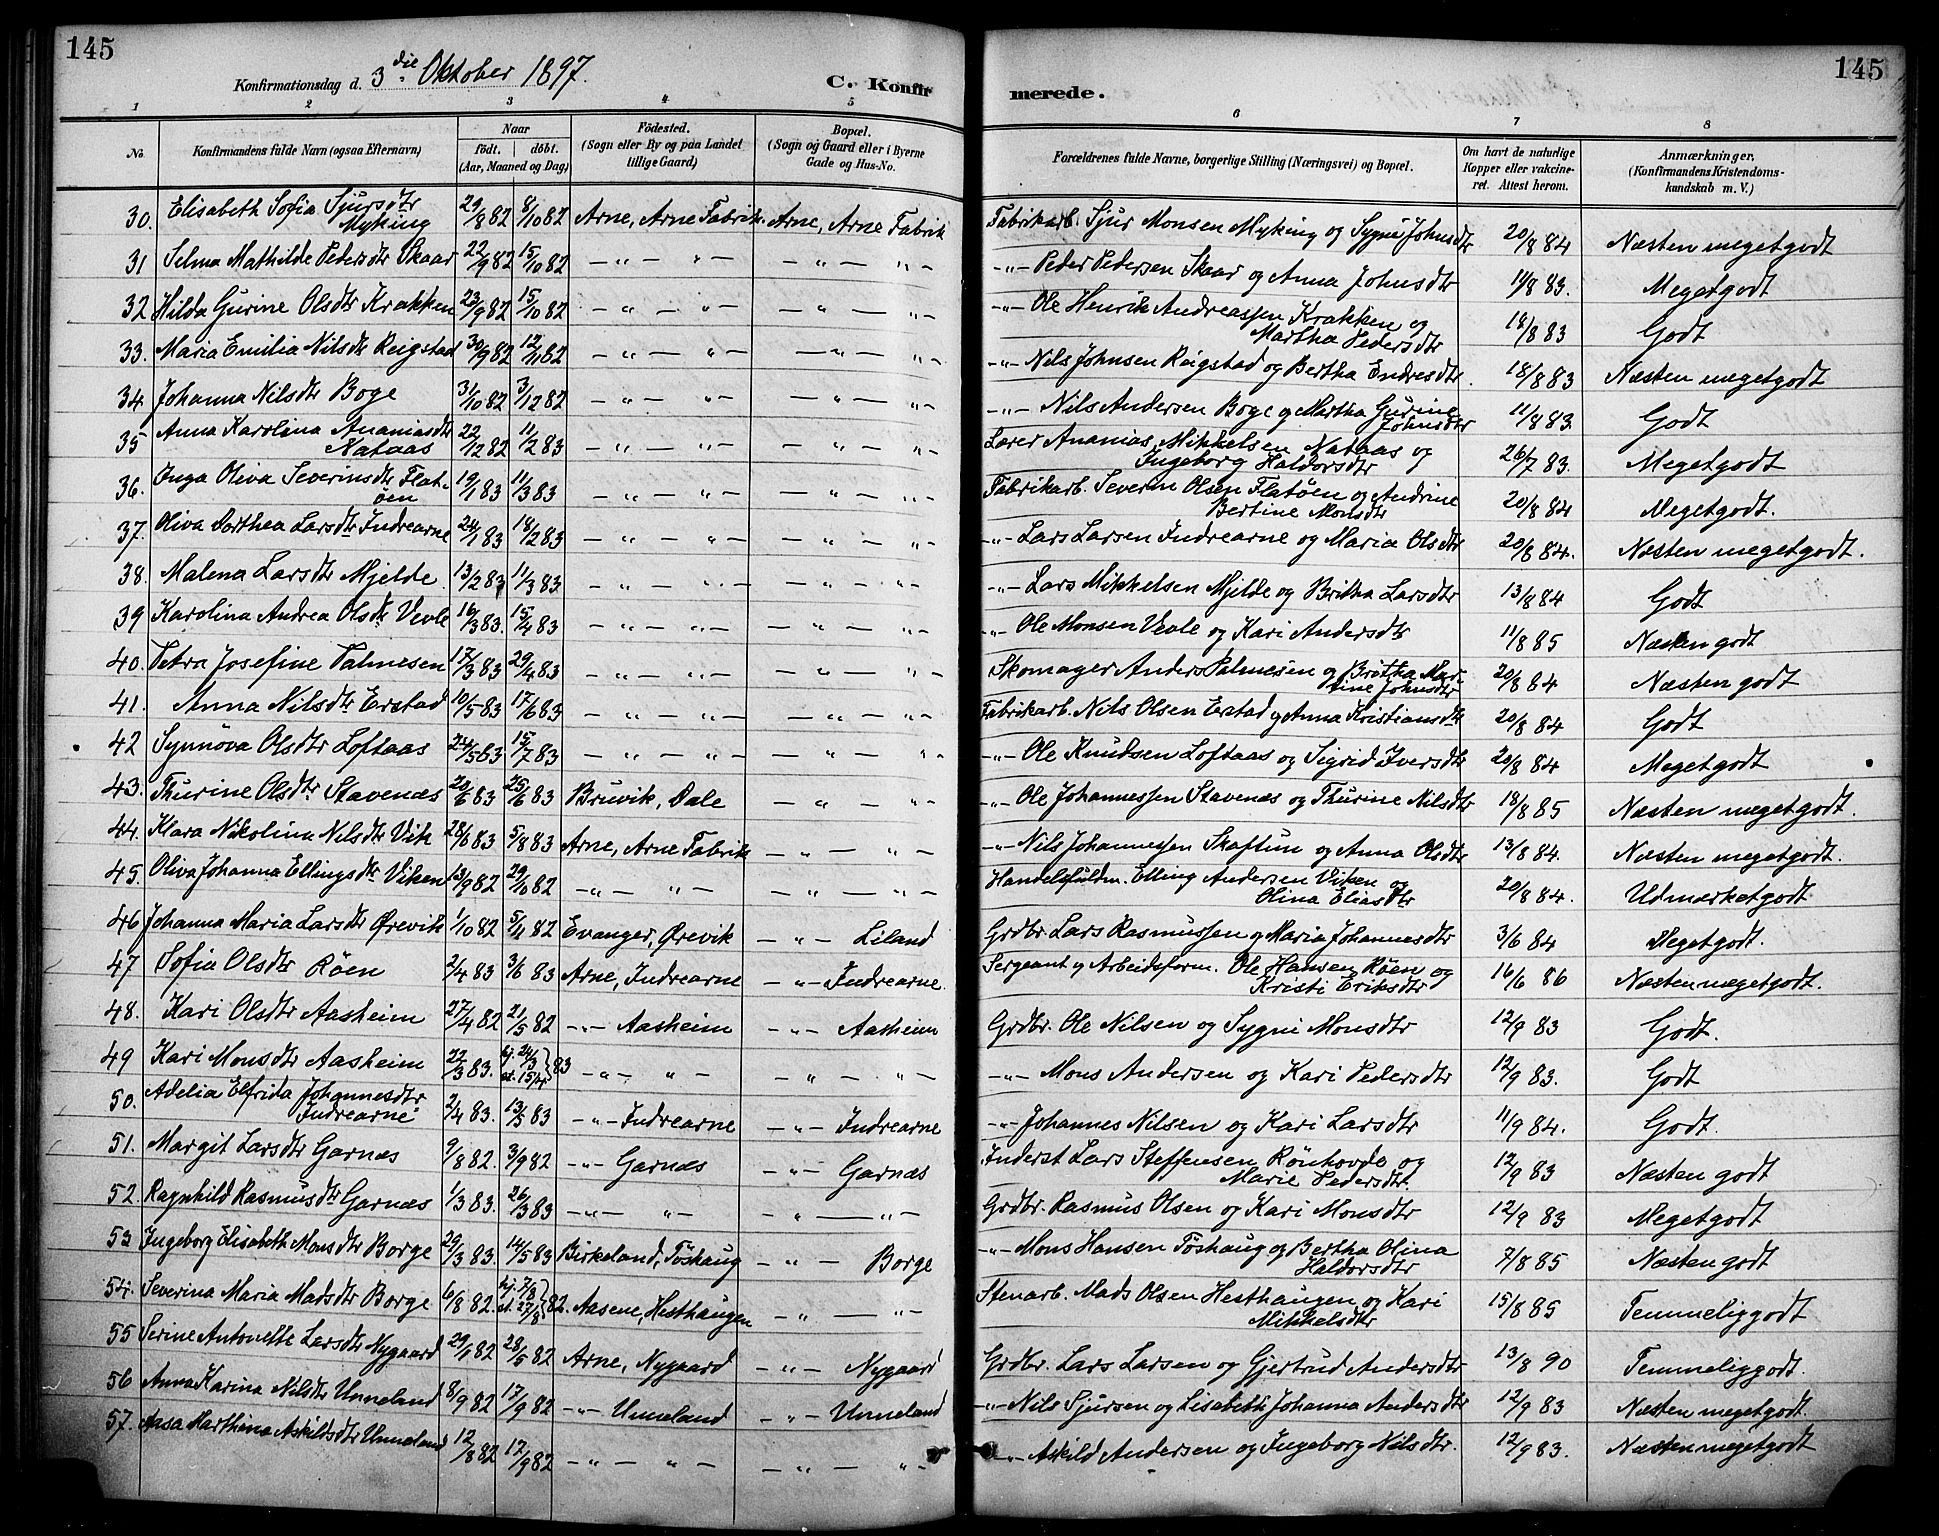 145
Konfirmationsdag d. 3die Oktober 1897.
C. Konfir merede.
145
1 2 3 4 5 6 7 8
No. Konfirmandens fulde Navn (ogsaa Efternavn) Naar födt. döbt. (Aar, Maaned og Dag) Födested. (Sogn eller By og paa Landet tillige Gaard) Bopæl. (Sogn og Gaard eller i Byerne Gade og Hus-No. Forældrenes fulde Navne, borgerlige Stilling (Næringsvei) og Bopæl. Om havt de naturlige Kopper eller vakcineret. Attest herom. Anmærkninger. (Konfirmandens Kristendomskundskab m. V.)
30. Elisabeth Sofia Sjursdtr Myking 29/8 82 8/10 82 Arne, Arne Fabrik Arne, Arne Fabrik Fabrikarb. Sjur Monsen Myking og Sygni Johnsdtr 20/8 84 Næsten megetgodt
31 Selma Mathilde Pedersdtr Skaar 22/9 82 15/10 82 — " — " — — " — " - -"- Peder Pedersen Skaar og Anna Johnsdtr 11/8 83. Megetgodt
32 Hilda Gurine Olsdtr Krakken 23/9 82 15/10 82 — " — " — — " — " - -"- Ole Henrik Andreassen Krakken og Martha Pedersdtr 18/8 83 Godt
33. Maria Emilia Nilsdtr Reigstad 30/9 82 12/11 82 — " — " — — " — " - -"- Nils Johnsen Reigstad og Bertha Endresdtr. 18/8 83 Næsten megetgodt
34 Johanna Nilsdtr Boge 31/10 82 3/12 82 — " — " — — " — " - -"- Nils Andersen Boge og Martha Gurine Johnsdtr 11/8 83 Godt
35 Anna Karolina Ananiasdtr Nataas 22/12 82 11/2 83 — " — " — — " — " - Lærer Ananias Mikkelsen Nataas og Ingeborg Haldorsdtr 26/7 83. Megetgodt
36. Inga Oliva Severinsdtr Flatöen 19/1 83 11/3 83 — " — " — — " — " - Fabrikarb. Severin Olsen Flatöen og Andrine Bertine Monsdtr 20/8 84 Megetgodt.
37. Oliva Dorthea Larsdtr Indrearne 24/1 83 18/2 83 — " — " — — " — " - -"- Lars Larsen Indrearne og Maria Olsdtr 20/8 84. Næsten megetgodt.
38. Malena Larsdtr Mjelde 13/2 83 11/3 83 — " — " — — " — " - -"- Lars Mikkelsen Mjelde og Britha Larsdtr 13/8 84 Godt
39 Karolina Andrea Olsdtr Vevle 16/3 83. 15/4 83 — " — " — — " — " - -"- Ole Monsen Vevle og Kari Andersdtr 11/8 85 Næsten godt
40. Petra Josefine Palmesen 17/3 83 29/4 83 — " — " — — " — " - Skomager Anders Palmesen og Britha Martine Johnsdtr 20/8 84 Næsten godt
41. Anna Nilsdtr Erstad 10/5 83 17/6 83 — " — " — — " — " - Fabrikarb. Nils Olsen Erstad og Anna Kristiansdtr 20/8 84 Godt
42 Synnöva Olsdtr Loftaas 24/5 83 15/7 83 — " — " — — " — " - -"- Ole Knudsen Loftaas og Sigrid Iversdtr 20/8 84 Megetgodt
43. Thurine Olsdtr Stavenæs 20/6 83 25/6 83 Bruvik, Dale — " — " - -"- Ole Johannessen Stavenæs og Thurine Nilsdtr 18/8 85 Næsten megetgodt.
44. Klara Nikolina Nilsdtr Vik 28/6 83 5/8 83 Arne, Arne Fabrik — " — " - -"- Nils Johannessen Skaftun og Anna Olsdtr 13/8 84. Næsten megetgodt.
45. Oliva Johanna Ellingsdtr Viken 13/9 82 29/10 82 -"- " — — " — " - Handelsfuldm. Elling Andersen Viken og Olina Eliasdtr 20/8 84. Udmærketgodt
46 Johanna Maria Larsdtr Ørevik 1/10 82 5/11 82 Evanger, Ørevik — " — Liland Grdbr. Lars Rasmussen og Maria Johannesdtr 3/6 84 Megetgodt.
47 Sofia Olsdtr Röen 2/4 83 3/6 83 Arne, Indrearne — " — Indrearne. Sergeant og Arbeidsform. Ole Hansen Röen og Kristi Eriksdtr 16/6 86 Næsten megetgodt.
48. Kari Olsdtr Aasheim 27/4 82 21/5 82 -"- Aasheim — " — Aasheim Grdbr. Ole Nilsen og Sygni Monsdtr 12/9 83 Godt.
49 Kari Monsdtr Aasheim 22/3 83. hj. 24/3 st. 15/4 } 83 -"- " — — " — " - -"- Mons Andersen og Kari Pedersdtr 12/9 83. Godt
50. Adelia Elfrida Johannesdtr Indrearne 2/4 83. 13/5 83 -"- Indrearne — " — Indrearne -"- Johannes Nilsen og Kari Larsdtr 11/9 84. Godt.
51. Margit Larsdtr Garnæs 9/8 82. 3/9 82 -"- Garnæs — " — Garnæs Inderst Lars Steffensen Rönhovde og Marie Pedersdtr. 12/9 83 Næsten godt
52. Ragnhild Rasmusdtr Garnæs 1/3 83. 26/3 83 -"- " — — " — " — Grdbr. Rasmus Olsen og Kari Monsdtr 12/9 83 Megetgodt
53 Ingeborg Elisabeth Monsdtr Borge 29/3 83. 14/5 83 Birkeland, Töshaug — " — Borge -"- Mons Hansen Töshaug og Bertha Olina Haldorsdtr 7/8 85 Næsten godt
54. Severina Maria Madsdtr Borge 6/8 82. hj. 7/8 st. 27/8 } 82. Aasene, Hesthaugen — " — " - Stenarb. Mads Olsen Hesthaugen og Kari Mikkelsdtr 15/8 85 Temmeliggodt
55 Serine Antonette Larsdtr Nygaard 29/1 82 28/5 82 Arne, Nygaard — " — Nygaard Grdbr. Lars Larsen og Gjertrud Andersdtr 13/8 90 Temmeliggodt.
56 Anna Karina Nilsdtr Unneland 8/9 82 17/9 82 -"- Unneland — " — Unneland -"- Nils Sjursen og Lisabeth Johanna Andersdtr 12/9 83 Næsten megetgodt.
57. Aasa Marthina Askildsdtr Unneland 12/8 82 12/9 82 -"- " — — " — " - -"- Askild Andersen og Ingeborg Nilsdtr. 12/9 83. Næsten megetgodt